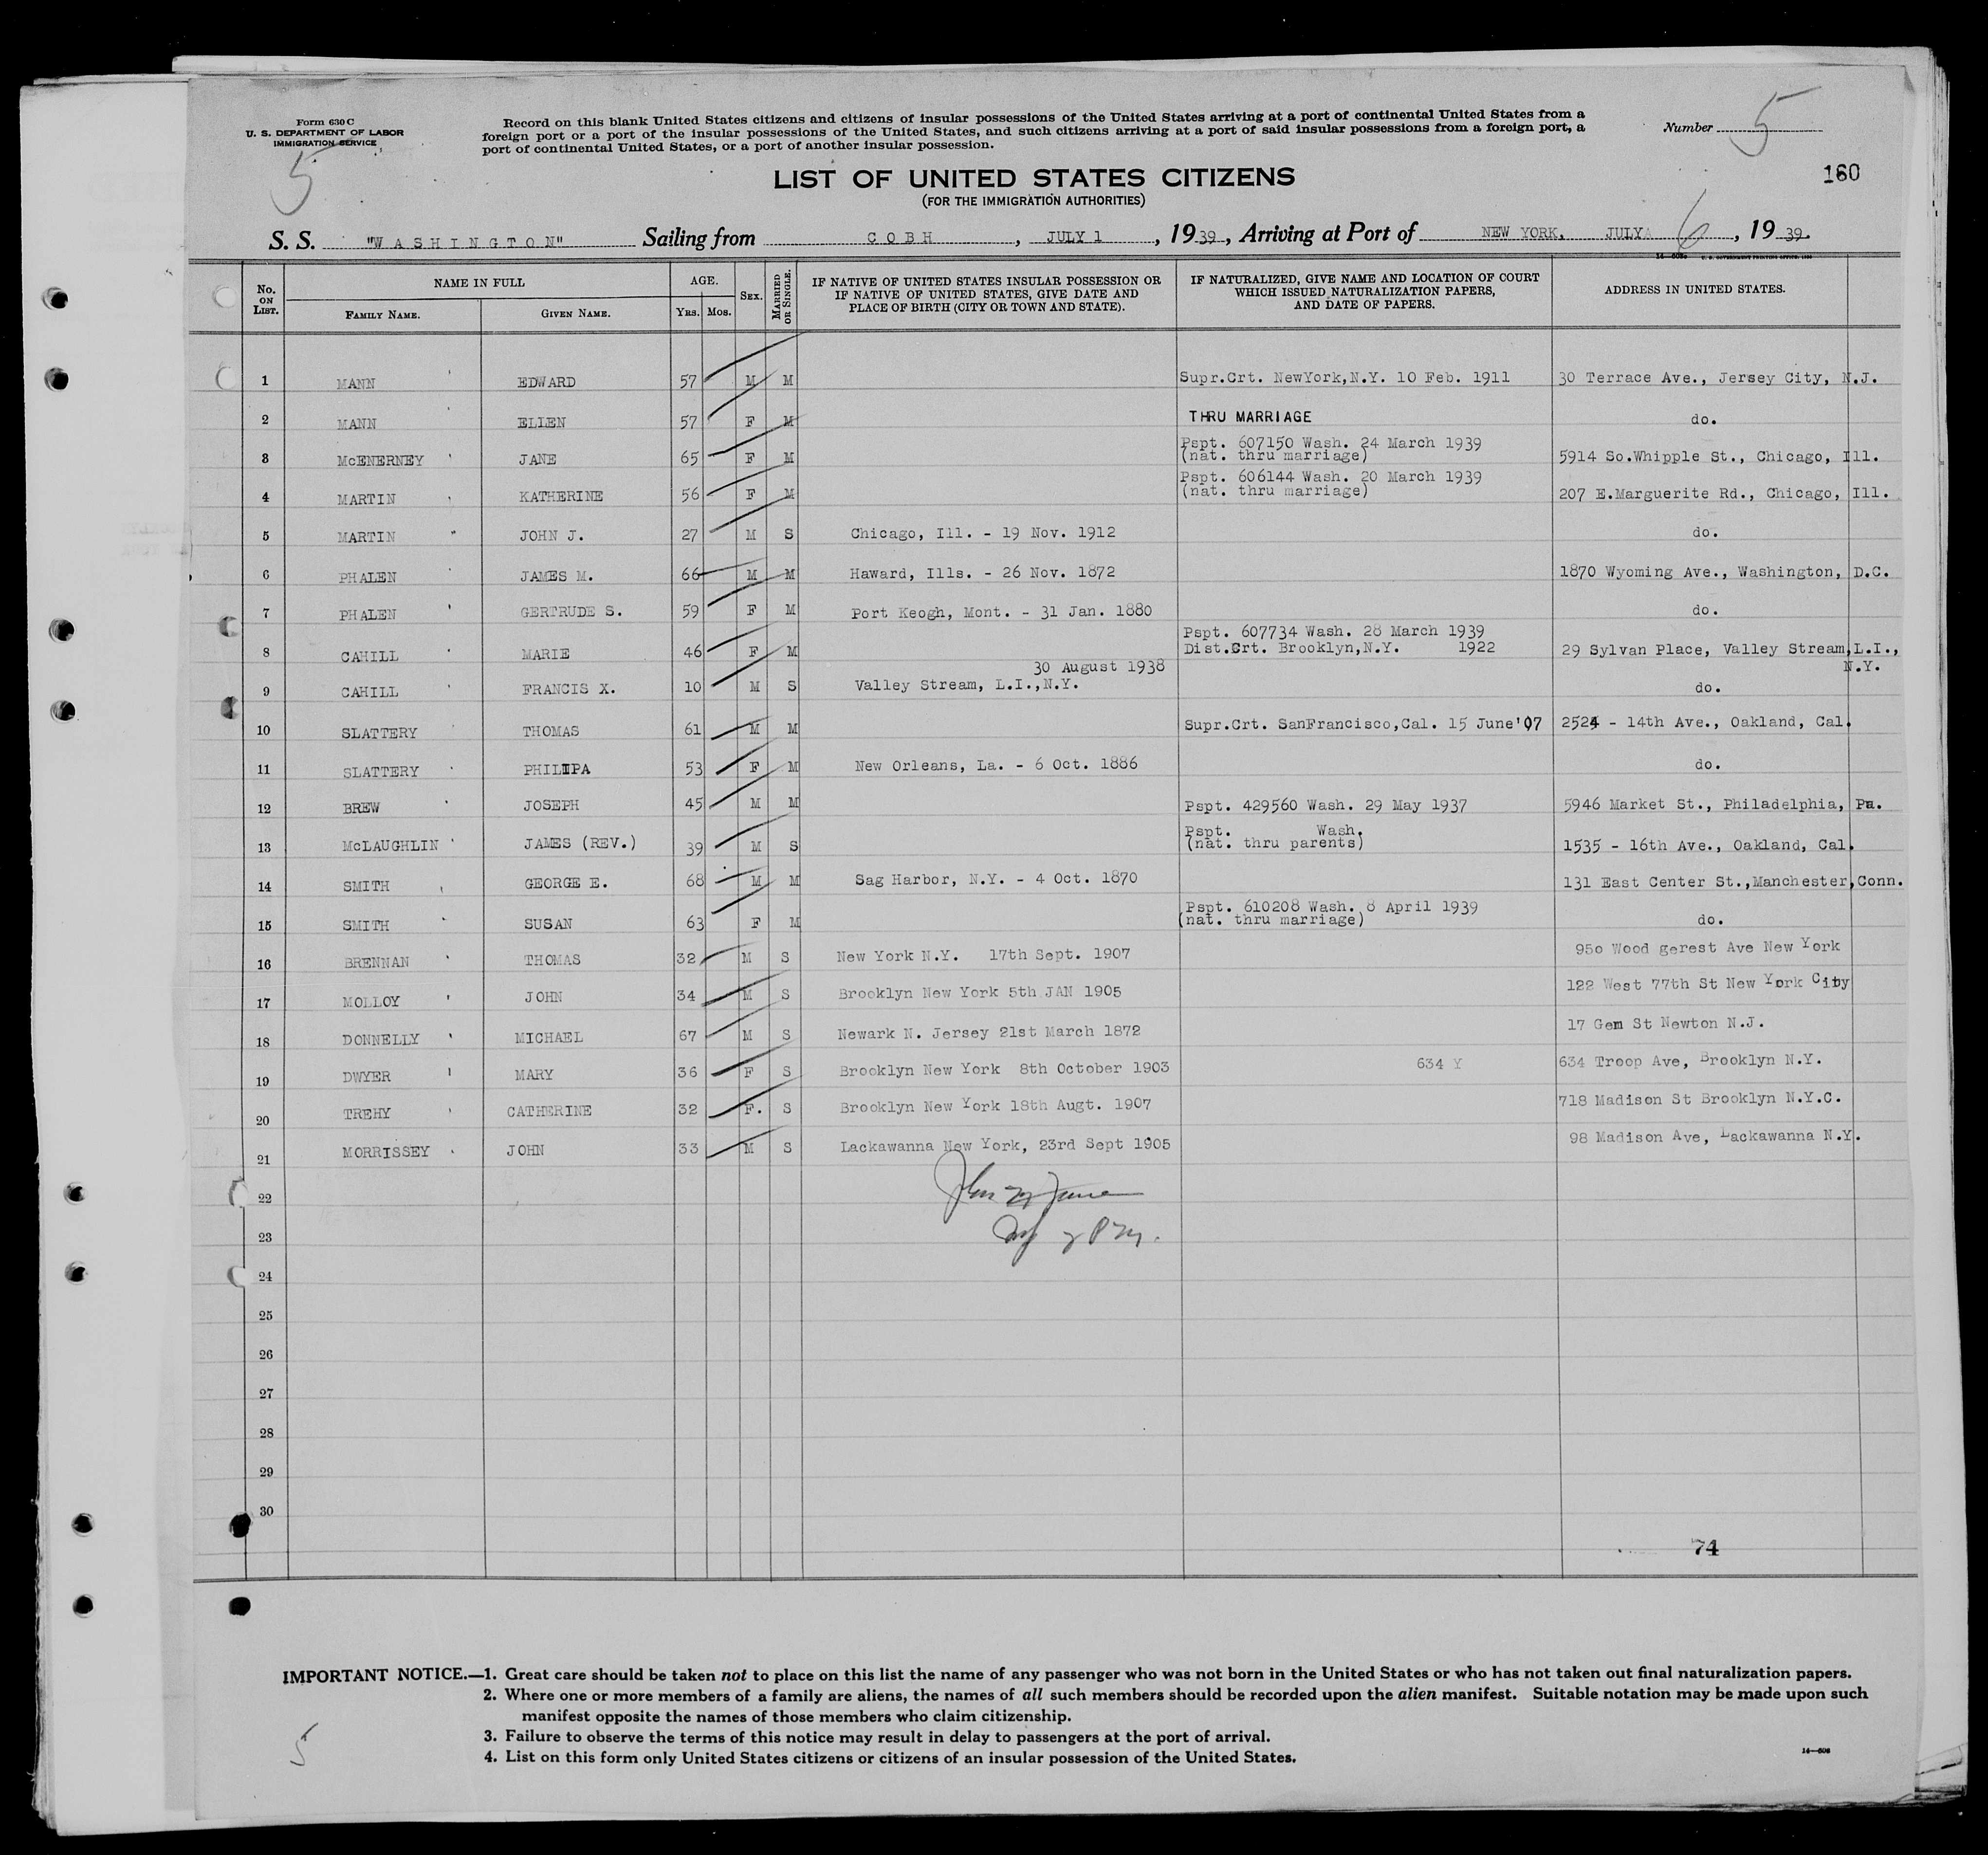 Form 630 C
U. S. DEPARTMENT OF LABOR
IMMIGRATION SERVICE
5
Record on this blank United States citizens and citizens of insular possessions of the United States arriving at a port of continental United States from a
foreign port or a port of the insular possessions of the United States, and such citizens arriving at a port of said insular possessions from a foreign port, a
port of continental United States, or a port of another insular possession.
Number 5
160
LIST OF UNITED STATES CITIZENS
(FOR THE IMMIGRATION AUTHORITIES)
S. S. "WASHINGTON" Sailing from COBH, JULY 1, 1939, Arriving at Port of NEW YORK, JULY 6, 1939.
No. ON LIST. NAME IN FULL FAMILY NAME. GIVEN NAME. AGE. YRS. MOS. SEX. MARRIED OR SINGLE. IF NATIVE OF UNITED STATES INSULAR POSSESSION OR IF NATIVE OF UNITED STATES, GIVE DATE AND PLACE OF BIRTH (CITY OR TOWN AND STATE). IF NATURALIZED, GIVE NAME AND LOCATION OF COURT WHICH ISSUED NATURALIZATION PAPERS, AND DATE OF PAPERS. ADDRESS IN UNITED STATES.
1 MANN EDWARD 57 M M Supr.Crt. NewYork,N.Y. 10 Feb. 1911 30 Terrace Ave., Jersey City, N.J.
2 MANN ELLEN 57 F M THRU MARRIAGE do.
3 McENERNEY JANE 65 F M Pspt. 607150 Wash. 24 March 1939 (nat. thru marriage) 5914 So.Whipple St., Chicago, Ill.
4 MARTIN KATHERINE 56 F M Pspt. 606144 Wash. 20 March 1939 (nat. thru marriage) 207 E.Marguerite Rd., Chicago, Ill.
5 MARTIN JOHN J. 27 M S Chicago, Ill. - 19 Nov. 1912 do.
6 PHALEN JAMES M. 66 M M Haward, Ills. - 26 Nov. 1872 1870 Wyoming Ave., Washington, D.C.
7 PHALEN GERTRUDE S. 59 F M Port Keogh, Mont. - 31 Jan. 1880 do.
8 CAHILL MARIE 46 F M Pspt. 607734 Wash. 28 March 1939 Dist.Crt. Brooklyn,N.Y. 1922 29 Sylvan Place, Valley Stream,L.I., N.Y.
9 CAHILL FRANCIS X. 10 M S 30 August 1938 Valley Stream, L.I.,N.Y. do.
10 SLATTERY THOMAS 61 M M Supr.Crt. SanFrancisco,Cal. 15 June'07 2524 - 14th Ave., Oakland, Cal.
11 SLATTERY PHILIPA 53 F M New Orleans, La. - 6 Oct. 1886 do.
12 BREW JOSEPH 45 M M Pspt. 429560 Wash. 29 May 1937 5946 Market St., Philadelphia, Pa.
13 McLAUGHLIN JAMES (REV.) 39 M S Pspt. Wash. (nat. thru parents) 1535 - 16th Ave., Oakland, Cal.
14 SMITH GEORGE E. 68 M M Sag Harbor, N.Y. - 4 Oct. 1870 131 East Center St.,Manchester,Conn.
15 SMITH SUSAN 63 F M Pspt. 610208 Wash. 8 April 1939 (nat. thru marriage) do.
16 BRENNAN THOMAS 32 M S New York N.Y. 17th Sept. 1907 950 Wood gerest Ave New York
17 MOLLOY JOHN 34 M S Brooklyn New York 5th JAN 1905 122 West 77th St New York City
18 DONNELLY MICHAEL 67 M S Newark N. Jersey 21st March 1872 17 Gem St Newton N.J.
19 DWYER MARY 36 F S Brooklyn New York 8th October 1903 634 Y 634 Troop Ave, Brooklyn N.Y.
20 TREHY CATHERINE 32 F. S Brooklyn New York 18th Augt. 1907 718 Madison St Brooklyn N.Y.C.
21 MORRISSEY JOHN 33 M S Lackawanna New York, 23rd Sept 1905 98 Madison Ave, Lackawanna N.Y.
22
23
24
25
26
27
28
29
30
74
IMPORTANT NOTICE.—1. Great care should be taken not to place on this list the name of any passenger who was not born in the United States or who has not taken out final naturalization papers.
2. Where one or more members of a family are aliens, the names of all such members should be recorded upon the alien manifest. Suitable notation may be made upon such
manifest opposite the names of those members who claim citizenship.
3. Failure to observe the terms of this notice may result in delay to passengers at the port of arrival.
4. List on this form only United States citizens or citizens of an insular possession of the United States.
5